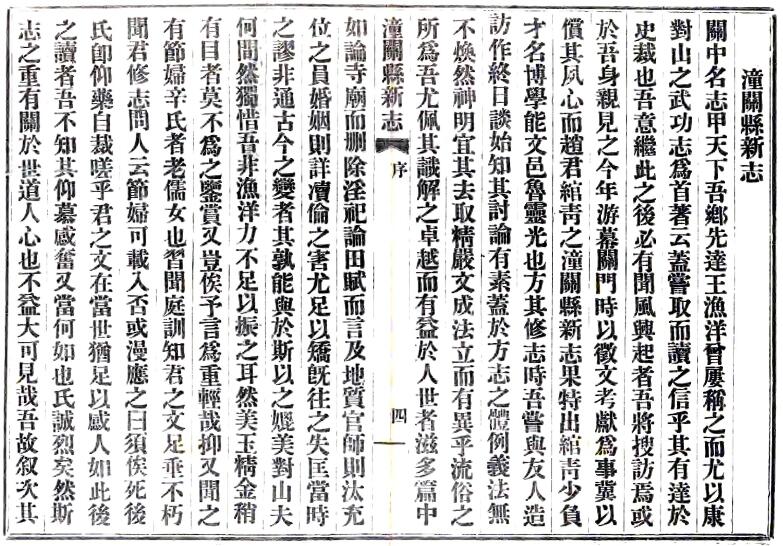 潼關縣新志
關中名志甲天下吾鄉先達王漁洋曾屢稱之而尤以康
對山之武功志爲首著云蓋嘗取而讀之信乎其有達於
史裁也吾意繼此之後必有聞風興起者吾將搜訪焉或
於吾身親見之今年游幕關門時以徵文考獻爲事冀以
償其夙心而趙君綰青之潼關縣新志果特出綰青少負
才名博學能文邑魯靈光也方其修志時吾嘗與友人造
訪作終日談始知其討論有素蓋於方志之體例義法無
不煥然神明宜其去取精嚴文成法立而有異乎流俗之
所爲吾尤佩其識解之卓越而有益於人世者滋多篇中
潼關縣新志 序 四
如論寺廟而删除淫祀論田賦而言及地質官師則汰充
位之員婚姻則詳瀆倫之害尤足以矯旣往之失匡當時
之謬非通古今之變者其孰能與於斯以之媲美對山夫
何間然獨惜吾非漁洋力不足以振之耳然美玉精金稍
有目者莫不爲之鑒賞又豈俟予言爲重輕哉抑又聞之
有節婦辛氏者老儒女也習聞庭訓知君之文足垂不朽
聞君修志問人云節婦可載入否或漫應之曰須俟死後
氏卽仰藥自裁嗟乎君之文在當世猶足以感人如此後
之讀者吾不知其仰慕感奮又當何如也氏誠烈矣然斯
志之重有關於世道人心也不益大可見哉吾故叙次其